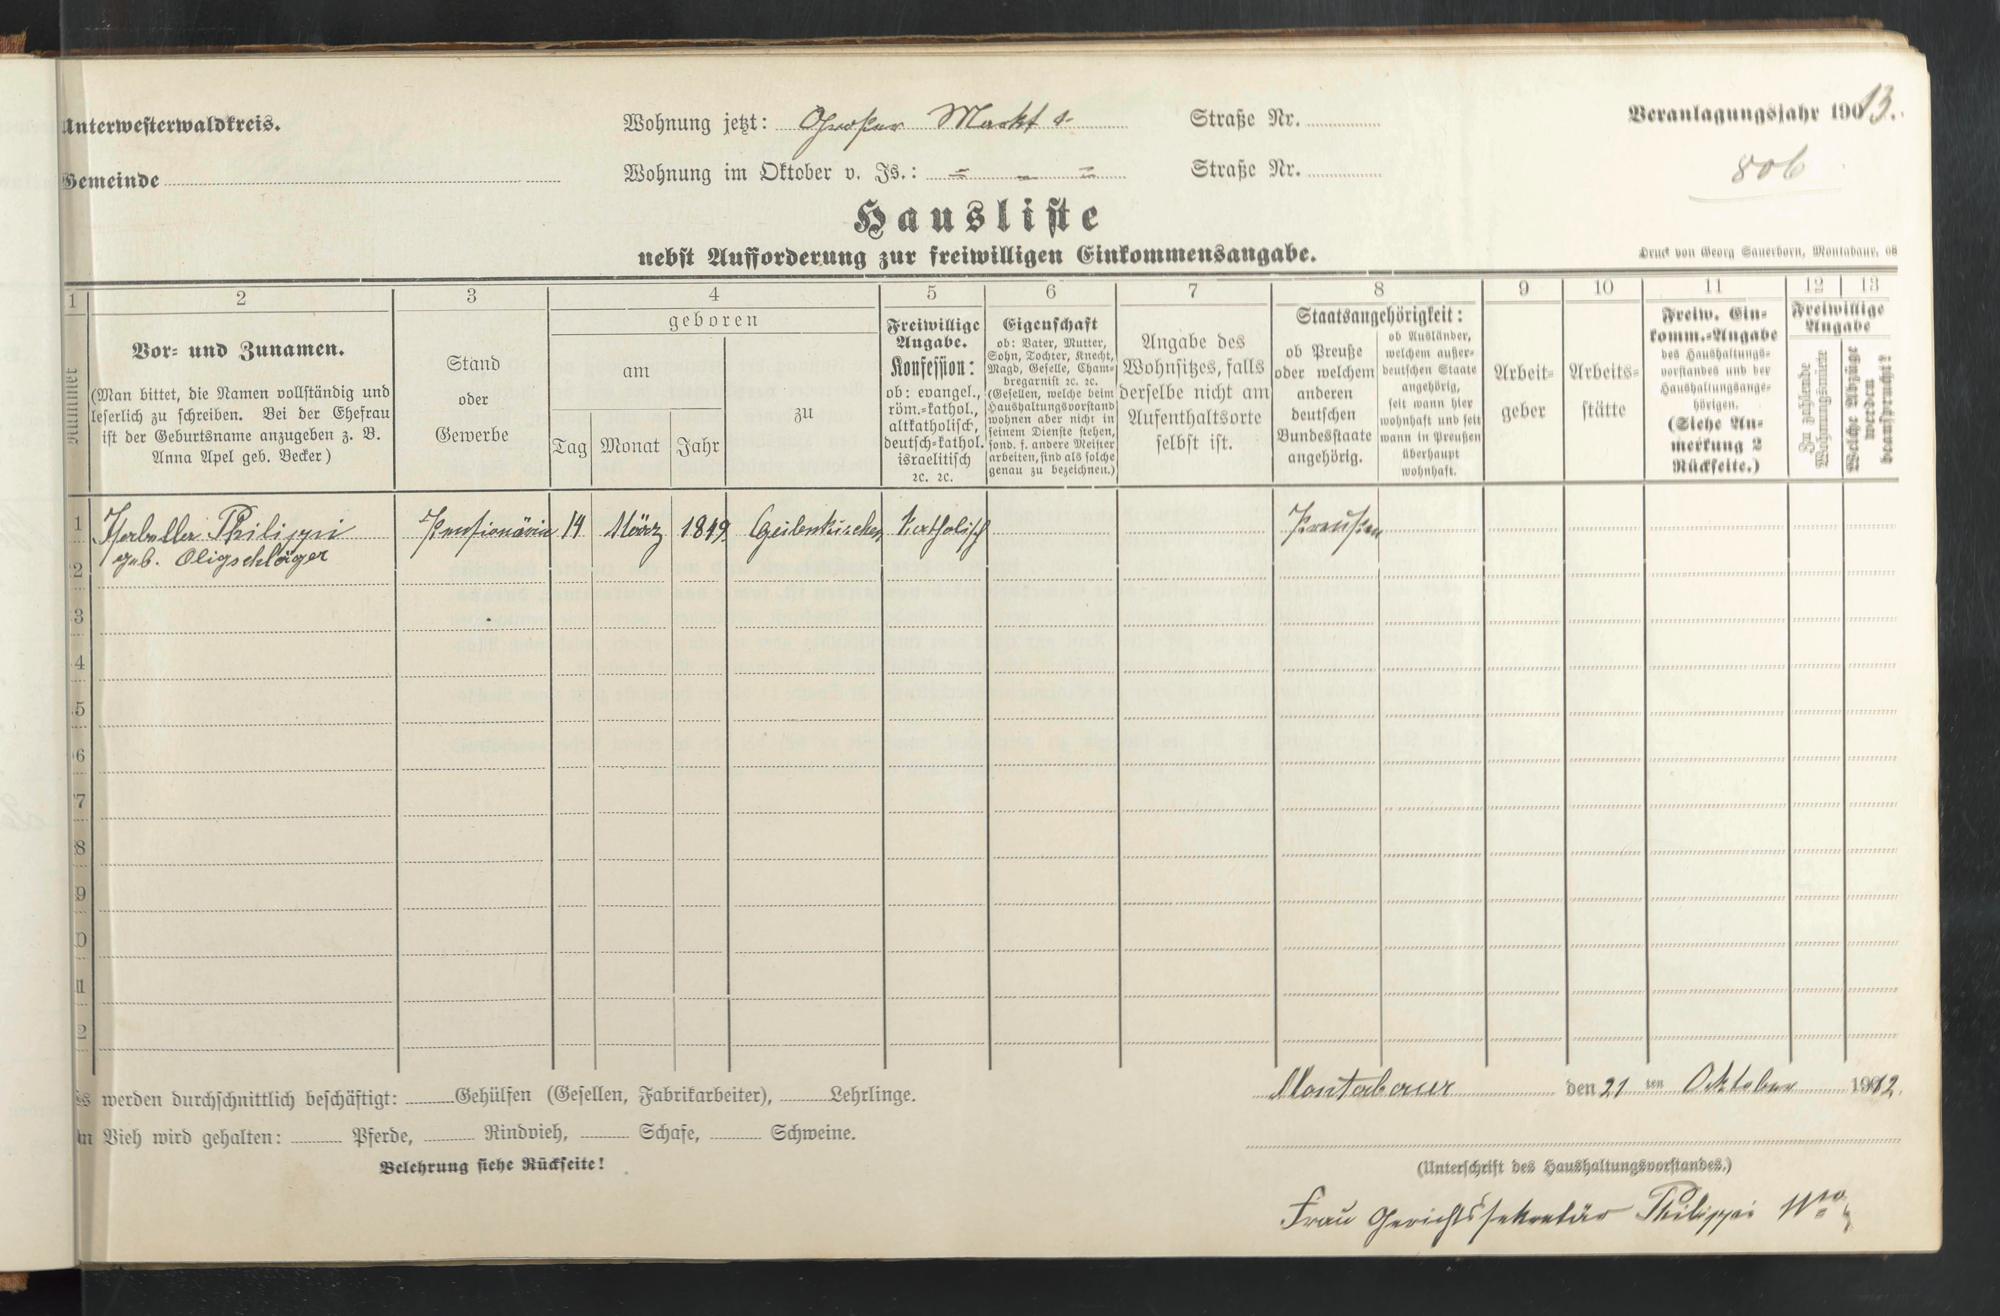 Unterwesterwaldkreis.
Wohnung jetzt: Großer Markt 1. Straße Nr.
Veranlagungsjahr 19013.
Gemeinde
Wohnung im Oktober v. Js.: = = = Straße Nr.
806
Hausliste
nebst Aufforderung zur freiwilligen Einkommensangabe.
Druck von Georg Sauerborn, Montabaur. 08
1 2 3 4 5 6 7 8 9 10 11 12 13
Nummer
Vor- und Zunamen.
(Man bittet, die Namen vollständig und
leserlich zu schreiben. Bei der Ehefrau
ist der Geburtsname anzugeben z. B.
Anna Apel geb. Becker)
Stand
oder
Gewerbe
geboren
am
Tag Monat Jahr
zu
Freiwillige
Angabe.
Konfession:
ob: evangel.,
röm.-kathol.,
altkatholisch,
deutsch-kathol.
israelitisch
ec. ec.
Eigenschaft
ob: Vater, Mutter,
Sohn, Tochter, Knecht,
Magd, Geselle, Cham-
bregarnist ec. ec.
(Gesellen, welche beim
Haushaltungsvorstand
wohnen aber nicht in
seinem Dienste stehen,
sond. f. andere Meister
arbeiten, sind als solche
genau zu bezeichnen.)
Angabe des
Wohnsitzes, falls
derselbe nicht am
Aufenthaltsorte
selbst ist.
Staatsangehörigkeit:
ob Preuße
oder welchem
anderen
deutschen
Bundesstaate
angehörig.
ob Ausländer,
welchem außer-
deutschen Staate
angehörig,
seit wann hier
wohnhaft und seit
wann in Preußen
überhaupt
wohnhaft.
Arbeit-
geber
Arbeits-
stätte
Freiw. Ein-
komm.-Angabe
des Haushaltungs-
vorstandes und der
Haushaltungsange-
hörigen.
(Siehe An-
merkung 2
Rückseite.)
Freiwillige
Angabe
Zu zahlende
Wohnungsmiete
Welche Abzüge
werden
beansprucht?
1 Philippi Pensionärin 14 März 1849 Geilenkirchen Katholisch Preußen
2 geb. Oligschläger
3
4
5
6
7
8
9
0
1
2
Es werden durchschnittlich beschäftigt: Gehülfen (Gesellen, Fabrikarbeiter), Lehrlinge.
An Vieh wird gehalten: Pferde, Rindvieh, Schafe, Schweine.
Belehrung siehe Rückseite!
Montabaur den 21 ten Oktober 1912.
(Unterschrift des Haushaltungsvorstandes.)
Frau Gerichtssekretär Philippi Wwe